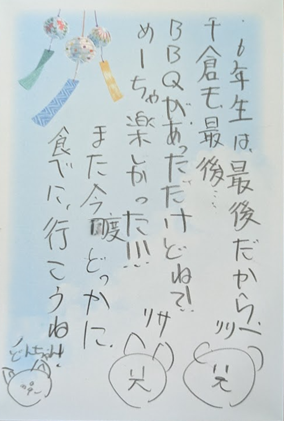 ・6年生は、最後だから、
千倉も最後…
BBQがあっただけどねて!
めーちゃ楽しかった!!!
また今度どっかに
食べに行こうね!
リリー
リサ
とんちゃん